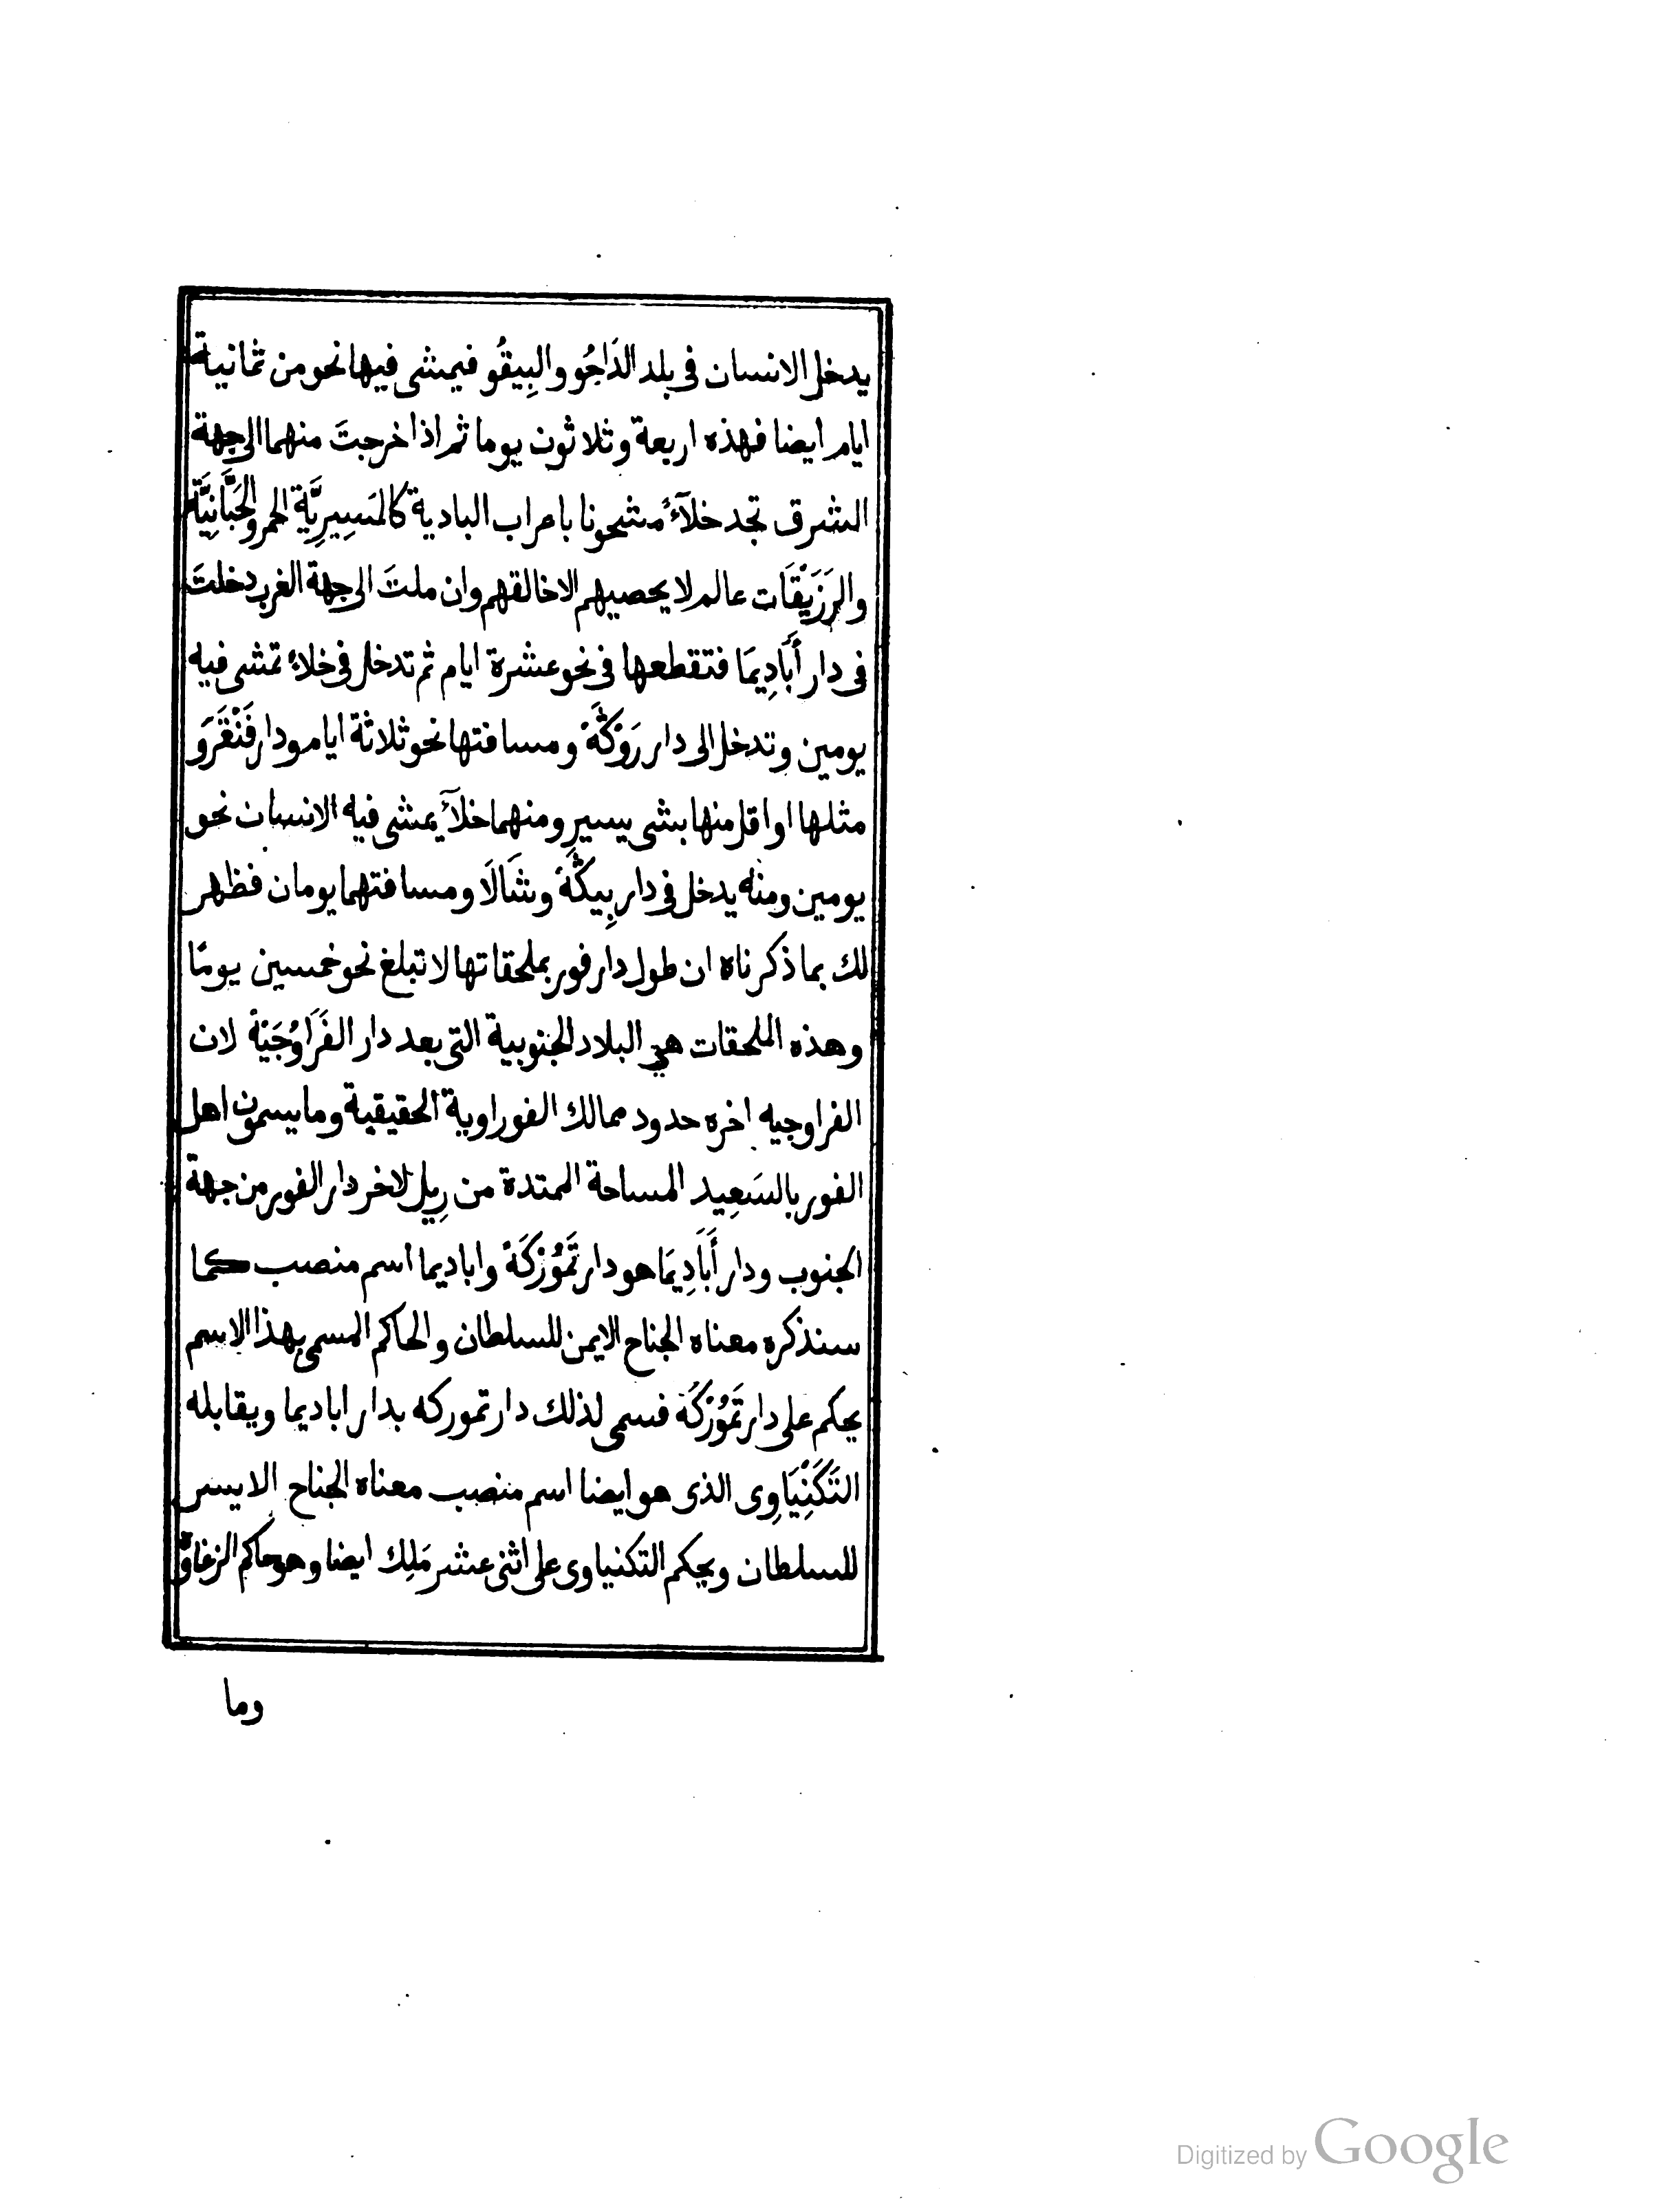 يدخل الانسان فى بلد الدَاجُو والبِيقُو فيمشى فيها نحو من ثمانية
ايام ايضا فهذه اربعة وثلاثون يوما ثم اذا خرجتَ منهما الى جهة
الشرق تجد خلآءً مشحونا باعراب البادية كالمَسِيرِيَّة الحمر والحَبَّانِيَّة
والرَزَيْقَات عالم لا يحصيهم الا خالقهم وان ملتَ الى جهة الغرب دخلتَ
فى دار أَبَّادِيمَا فتقطعها فى نحو عشرة ايام ثم تدخل فى خلاء تمشى فيه
يومين وتدخل الى دار رَوَنْكَهْ ومسافتها نحو ثلاثة ايام ودار فَنْقَرَو
مثلها او اقل منها بشى يسير ومنهما خلآ يمشى فيه الانسان نحو
يومين ومنه يدخل فى دار بِينَكَهْ وشَالَا ومسافتهما يومان فظهر
لك بما ذكرناه ان طول دار فور بملحقاتها لا تبلغ نحو خمسين يومًا
وهذه الملحقات هى البلاد الجنوبية التى بعد دار الفَرَاوُجَيْهْ لان
الفراوجيه اخره حدود ممالك الفوراوية الحقيقية وما يسمون اهل
الفور بالسَعِيد المساحة الممتدة من رِيل لاخر دار الفور من جهة
الجنوب ودار أَبَادِيمَا هو دار تَمُوْرْكَهْ واباديما اسم منصب كما
سنذكره معناه الجناح الايمن للسلطان والحاكم المسمى بهذا الاسم
يحكم على دار تَمُوْرْكَهْ فسمى لذلك دار تموركه بدار اباديما ويقابله
التَكَنِْيَاوِى الذى هو ايضا اسم منصب معناه الجناح الايسر
للسلطان ويحكم التكنياوى على اثنى عشر مَلِك ايضا وهو حاكم الزغاوة
وما
Digitized by Google